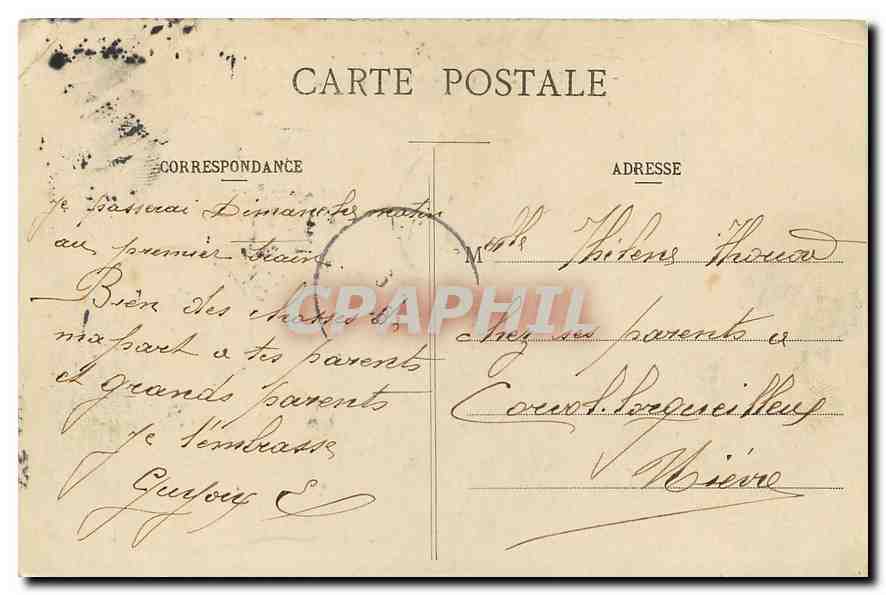 CARTE POSTALE
CORRESPONDANCE
je passerai Dimanche matin
au premier train.
Bien des choses de
ma part a tes parents
et grands parents
Je t'embrasse
ADRESSE
Melle Thouard
chez ses parents a
Corvol. l'orgueilleux
Nièvre
CPAPHIL